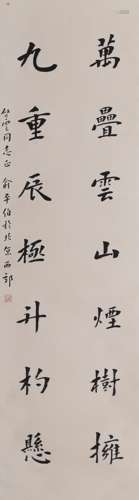 萬疊雲山煙樹擁
九重辰極斗杓懸
同志正 俞平伯於北京西郊